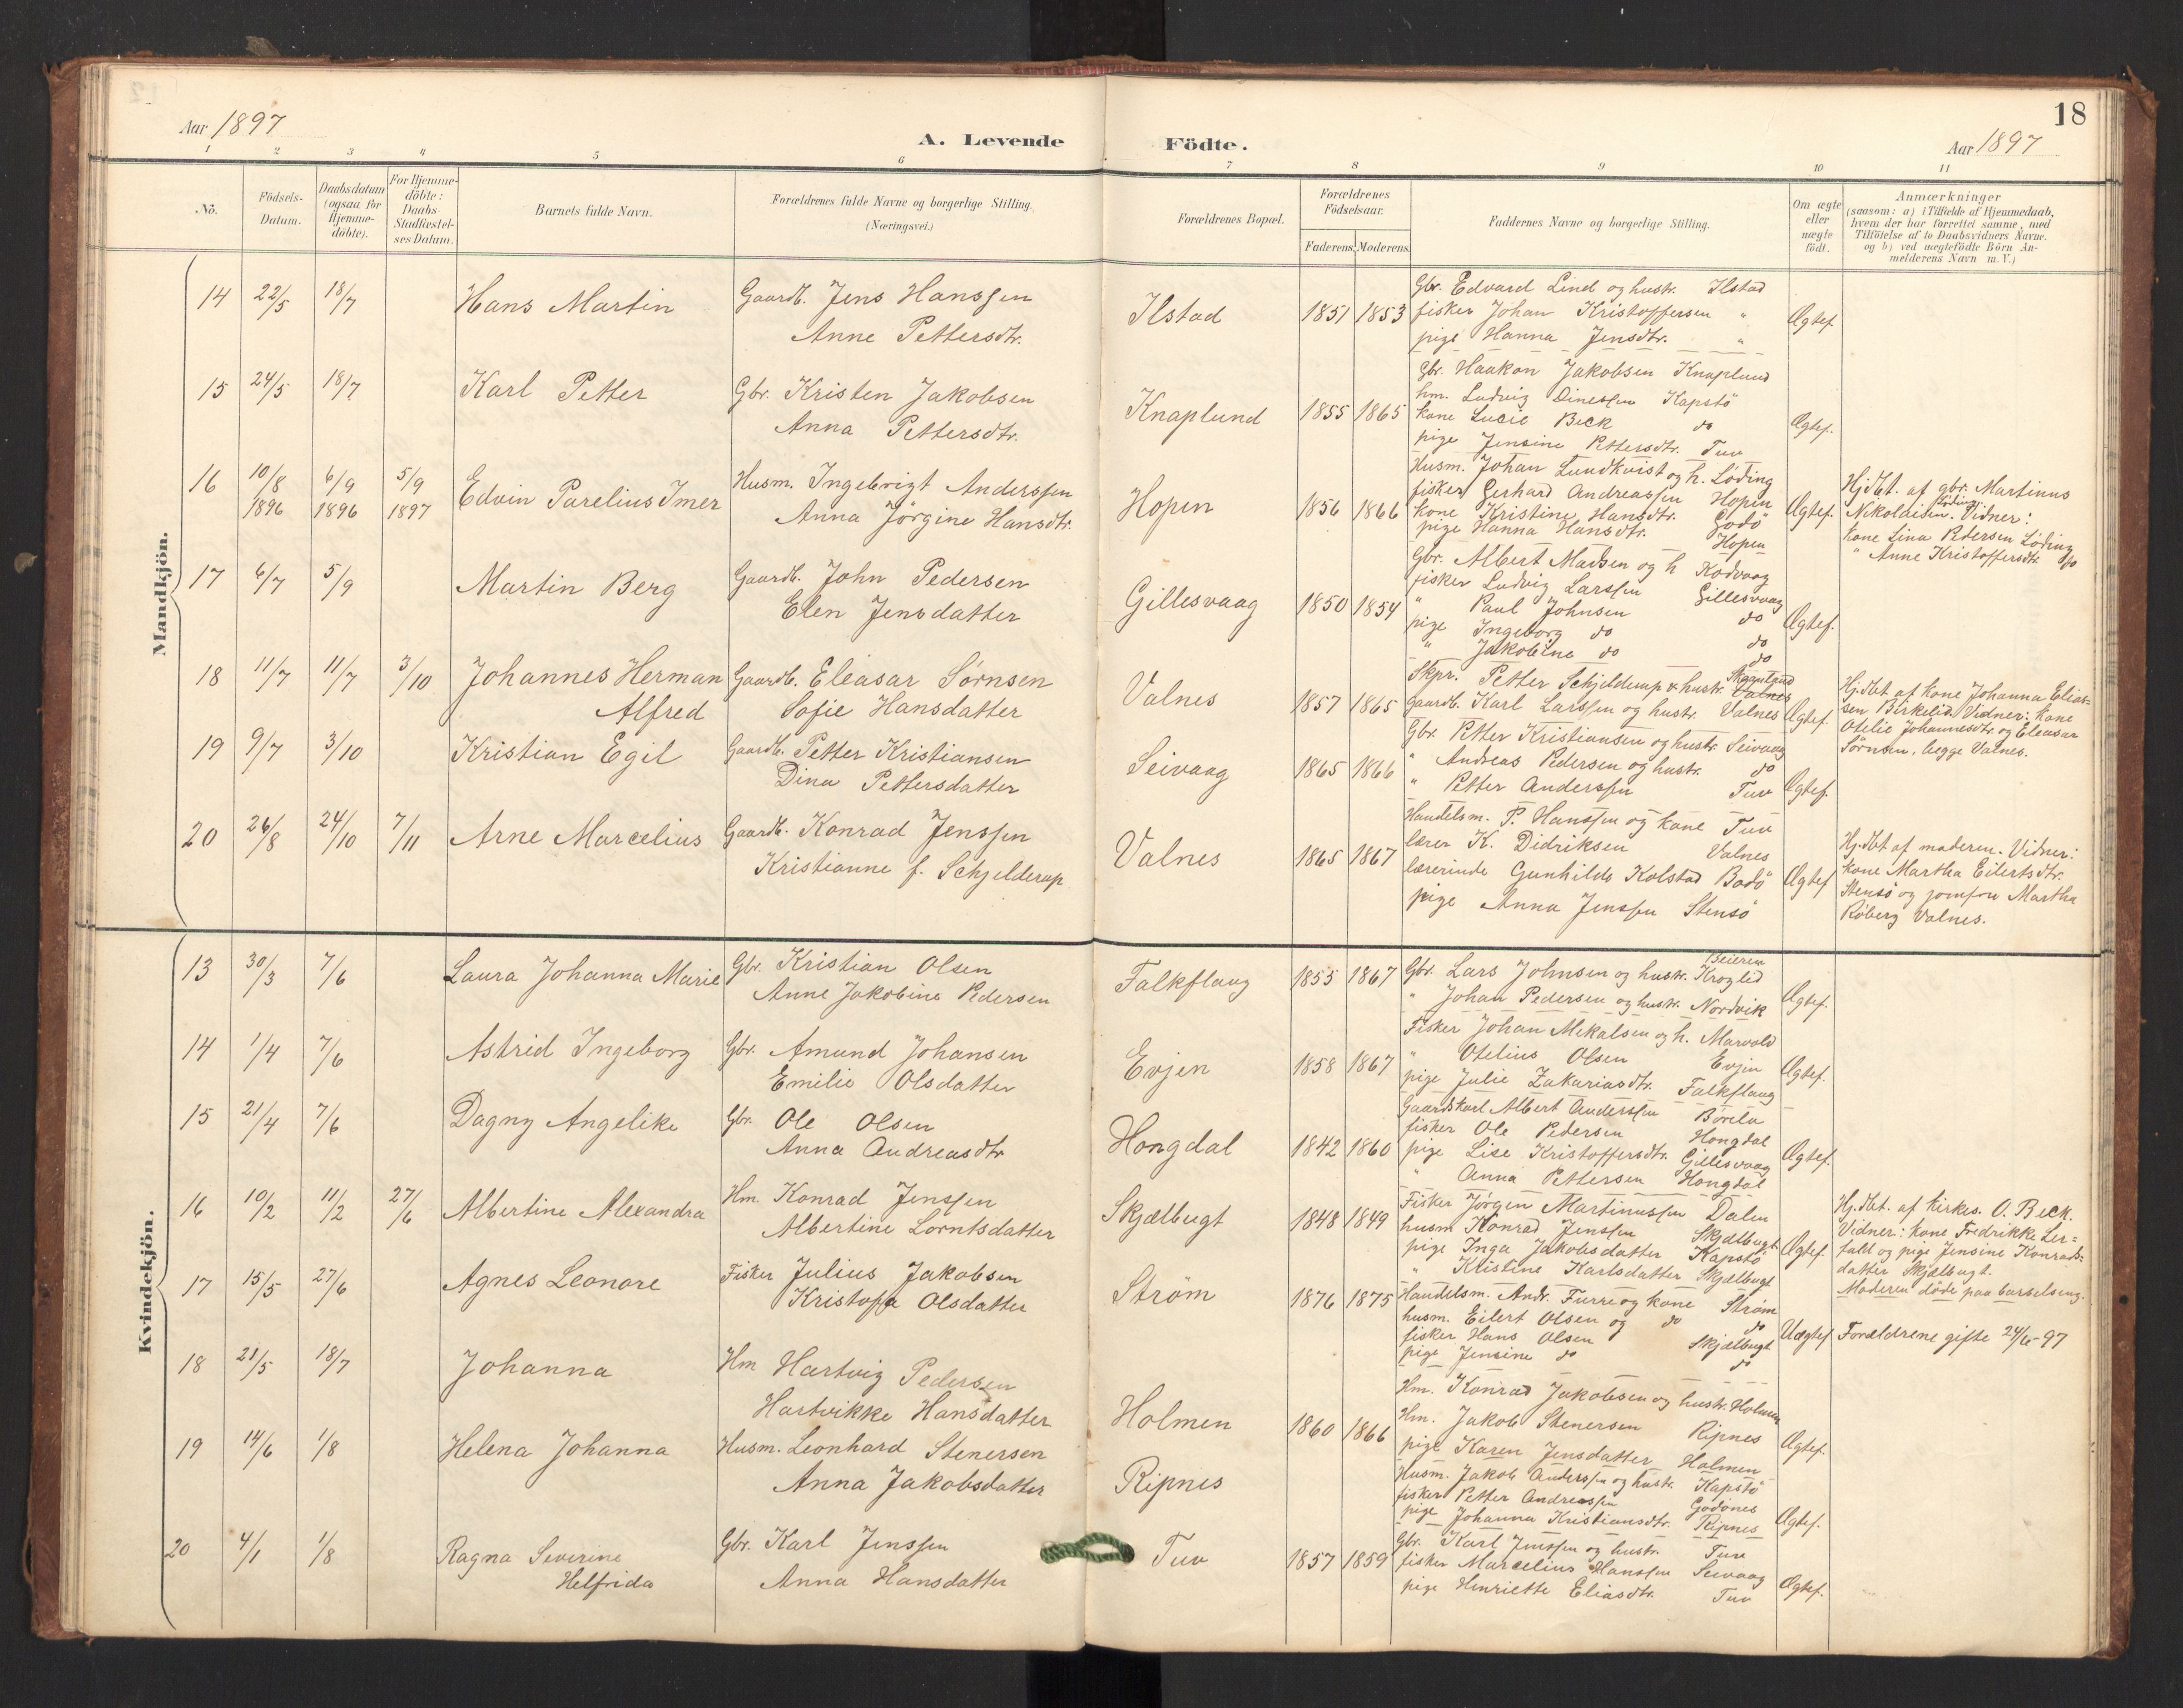 18
Aar 1897
A. Levende Födte.
Aar 1897
1 2 3 4 5 6 7 8 9 10 11
No.
Födsels-Datum.
Daabsdatum (ogsaa for Hjemme-döbte).
For Hjemme-döbte: Daabs-Stadfæstel-ses Datum.
Barnets fulde Navn.
Forældrenes fulde Navne og borgerlige Stilling. (Næringsvei.)
Forældrenes Bopæl.
Forældrenes Födselsaar.
Faderens. Moderens.
Faddernes Navne og borgerlige Stilling.
Om ægte eller uægte födt.
Anmærkninger
(saasom: a) i Tilfælde af Hjemmedaab,
hvem der har forrettet samme, med
Tilföielse af to Daabsvidners Navne.
og b) ved uægtefödte Börn An-
melderens Navn m. V.)
Mandkjön.
14 22/5 18/7 Hans Martin
Gaardb. Jens Hanssen
Anne Pettersdtr.
Ilstad 1851 1853
Gbr. Edvard Lind og hustr. Ilstad
fisker Johan Kristoffersen "
pige Hanna Jensdtr. "
Ægtef.
15 24/5 18/7 Karl Petter
Gbr. Kristen Jakobsen
Anna Pettersdtr.
Knaplund 1855 1865
Gbr. Haakon Jakobsen Knaplund
hm. Ludvig Dinessen Kapstö
kone Lucie Beck do
pige Jensine Pettersdtr. Tuv
Ægtef.
16 10/8 1896 6/9 1896 5/9 1897 Edvin Parelius Imer
Husm. Ingebrigt Anderssen
Anna Jörgine Hansdtr.
Hopen 1856 1866
Husm. Johan Lundkvist og h. Löding
fisker Gerhard Andreassen Hopen
kone Kristine Hansdtr. Godö
pige Hanna Hansdtr. Hopen
Ægtef.
Hj.dbt. af gbr. Martinus
Nikolaisen Löding. Vidner:
kone Lina Pedersen Löding
" Anne Kristoffersdtr. do
17 6/7 5/9 Martin Berg
Gaardb. John Pedersen
Elen Jensdatter
Gillesvaag 1850 1854
Gbr. Albert Madsen og h Kodvaag
fisker Ludvig Larssen Gillesvaag
" Paul Johnsen do
pige Ingeborg do do
" Jakobine do do
Ægtef.
18 11/7 11/7 3/10 Johannes Herman
Alfred
Gaardb. Eleasar Sörnsen
Sofie Hansdatter
Valnes 1857 1865
Skpr. Petter Schjelderup & hustr. Skaanland Valnes
gaardb. Karl Larssen og hustr. Valnes
Ægtef.
Hj.dbt af kone Johanna Elias-
sen Birkelid. Vidner: kone
Otelie Johannesdtr. og Eleasar
Sörnsen, begge Valnes.
19 9/7 3/10 Kristian Egil
Gaardb. Petter Kristiansen
Dina Pettersdatter
Seivaag 1865 1866
Gbr. Petter Kristiansen og hustr. Seivaag
" Andreas Pedersen og hustr. do
" Petter Anderssen Tuv
Ægtef.
20 26/8 24/10 7/11 Arne Marcelius
Gaardb. Konrad Jenssen
Kristianne f. Schjelderup
Valnes 1865 1867
Handelsm. P. Hanssen og kone Tuv
lærer K. Didriksen Valnes
lærerinde Gunhilde Kolstad Bodö
pige Anna Jenssen Stensö
Ægtef
Hj.dbt af moderen. Vidner:
kone Martha Eilertsdtr.
Stensö og jomfru Martha
Röberg Valnes.
Kvindekjön.
13 30/3 7/6 Laura Johanna Marie
Gbr. Kristian Olsen
Anne Jakobine Pedersen
Falkflaug 1855 1867
Gbr. Lars Johnsen og hustr. Kroglid Beieren
" Johan Pedersen og hustr. Nordvik
Ægtef.
14 1/4 7/6 Astrid Ingeborg
Gbr. Amund Johansen
Emilie Olsdatter
Evjen 1858 1867
Fisker Johan Mikalsen og h. Marvold
" Otelius Olsen Evjen
pige Julie Zakariasdtr. Falkflaug
Ægtef.
15 21/4 7/6 Dagny Angelike
Gbr. Ole Olsen
Anna Andreasdtr
Hongdal 1842 1860
Gaardskarl Albert Anderssen Börelv
fisker Ole Pedersen Hongdal
pige Lise Kristoffersdtr. Gillesvaag
" Anna Pettersen Hongdal
Ægtef.
16 10/2 11/2 27/6 Albertine Alexandra
Hm. Konrad Jenssen
Albertine Lorntsdatter
Skjælbugt 1848 1849
Fisker Jörgen Martinussen Dalen
husm. Konrad Jenssen Skjælbugt
pige Inga Jakobsdatter Kapstö
" Kristine Karlsdatter Skjælbugt
Ægtef.
Hj.dbt. af kirkes. O. Beck.
Vidner: kone Fredrikke Ler=
fald og pige Jensine Konrads=
datter Skjælbugt.
Moderen döde paa barselseng.
17 15/5 27/6 Agnes Leonore
Fisker Julius Jakobsen
Kristofa Olsdatter
Ström 1876 1875
Handelsm. Andr. Furre og kone Ström
husm. Eilert Olsen og do do
fisker Hans Olsen Skjælbugt
pige Jensine do do
Uægtef
Forældrene gifte 24/6-97
18 21/5 18/7 Johanna
Hm Hartvig Pedersen
Hartvikke Hansdatter
Holmen 1860 1866
Hm. Konrad Jakobsen og hustr. Holmen
Hm. Jakob Stenersen Ripnes
pige Karen Jensdatter Holmen
Ægtef.
19 14/6 1/8 Helena Johanna
Husm. Leonhard Stenersen
Anna Jakobsdatter
Ripnes
Husm. Jakob Anderssen og hustr. Kapstö
fisker Petter Andreassen Godönes
pige Johanna Kristiansdtr. Ripnes
Ægtef.
20 4/1 1/8 Ragna Severine
Helfrida
Gbr. Karl Jenssen
Anna Hansdatter
Tuv 1857 1859
Gbr. Karl Jenssen og hustr. Tuv
fisker Marcelius Hanssen Seivaag
pige Henriette Eliasdtr. Tuv
Ægtef.